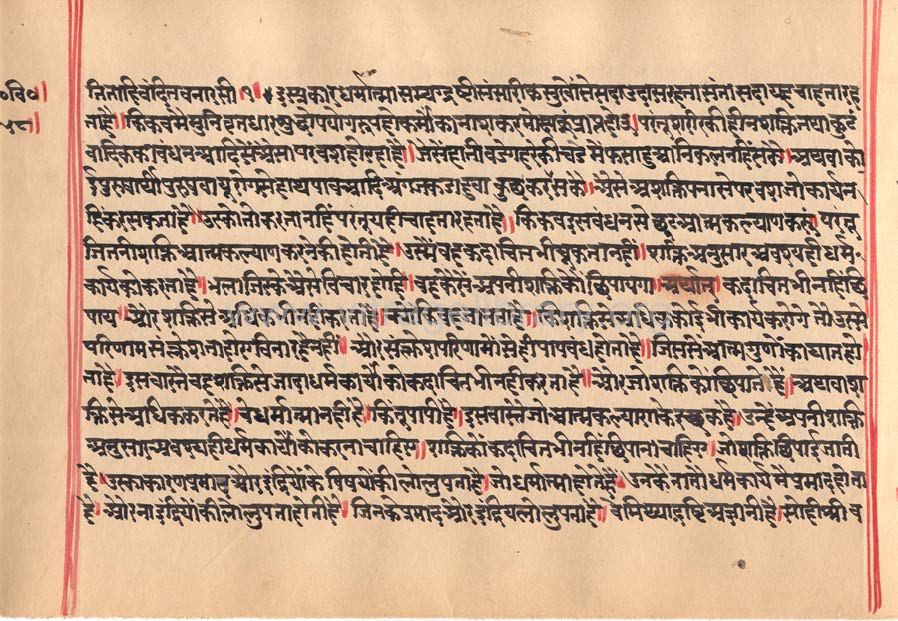 निताहि वंदित वनारसी १ ॥ इस प्रकार धर्मात्मा सम्यग्दृष्टी संसारिक सुखों से सदा उदास रहता संता सदा यह चाहता रह
ता है ॥ कि कव मै मुनि व्रत धार शुद्धोपयोग रूप हो कर्मौं का नाश कर मोक्ष कू प्राप्त होउ ॥ परन्तू शरीर की हीन शक्ति तथा कुटं
वादिक का वंधन आदि से ऐसा परवश हो रहा है ॥ जैसे हाती वडे गहरे कीचड मै फसा हुआ निकल नहिं सकै ॥ अथवा को
ई पुरुषार्थी पुरुष वायू रोग से हाथ पाव आदि अंग जकडा हुवा कुछ कर सकै ॥ ऐसे अशक्तिपना से परवश जो कार्य न
हि कर सकता है ॥ उसको तो करता नहिं परंतू यही चाहता रहता है ॥ कि कव इस वंधन से छुट आत्मकल्याण करूं परंतू
जितनी शक्ति आत्मकल्याण करने की होती है ॥ उस्मे वह कदाचित भी चूकता नही ॥ शक्ति अनुसार अवश्य ही धर्म
कार्य को करता है ॥ भला जिस्के ऐसे विचार होंगे ॥ वह कैसे अपनी शक्ति को छिपायगा अर्थात् कदाचित भी नाहिं छि
पाय ॥ और शक्ति से अधिक भी नहिं करता ॥ शक्ति से अधिक कोई भी कार्य करोगे तो उस्से
परिणाम संक्लेशता हो गए विना रहे नही ॥ और संक्लेश परिणामों से ही पाप वंध होता है ॥ जिससे आत्म गुणों का घात हो
ता है ॥ इस वास्तै वह शक्ति से जादा धर्म कार्यौ को कदाचित भी नही करता है ॥ और जो शक्ति कों छिपाते है ॥ अथवा श
क्ति से अधिक करते है ॥ वे धर्मात्मा नही है ॥ किंतू पापी है ॥ इस वास्ते जो आत्मकल्याण के इच्छुक है ॥ उन्हे अपनी शक्ति
अनुसार अवष्यही धर्म कार्यौ को करना चाहिए ॥ शक्ति कों कदाचित भी नहिं छिपाना चाहिए ॥ जो शक्ति छिपाई जाती
है ॥ उस्का कारण प्रमाद और इंद्रियों के विषयों की लोलुपता है ॥ जो धर्मात्मा होते है ॥ उनके न तो धर्म कार्य मै प्रमाद होता
है ॥ और ना इंद्रियों की लोलुपता होती है ॥ जिनके प्रमाद और इंद्रिय लोलुपता है ॥ वे मिथ्यादृष्टि अज्ञानी है ॥ सोही श्री व